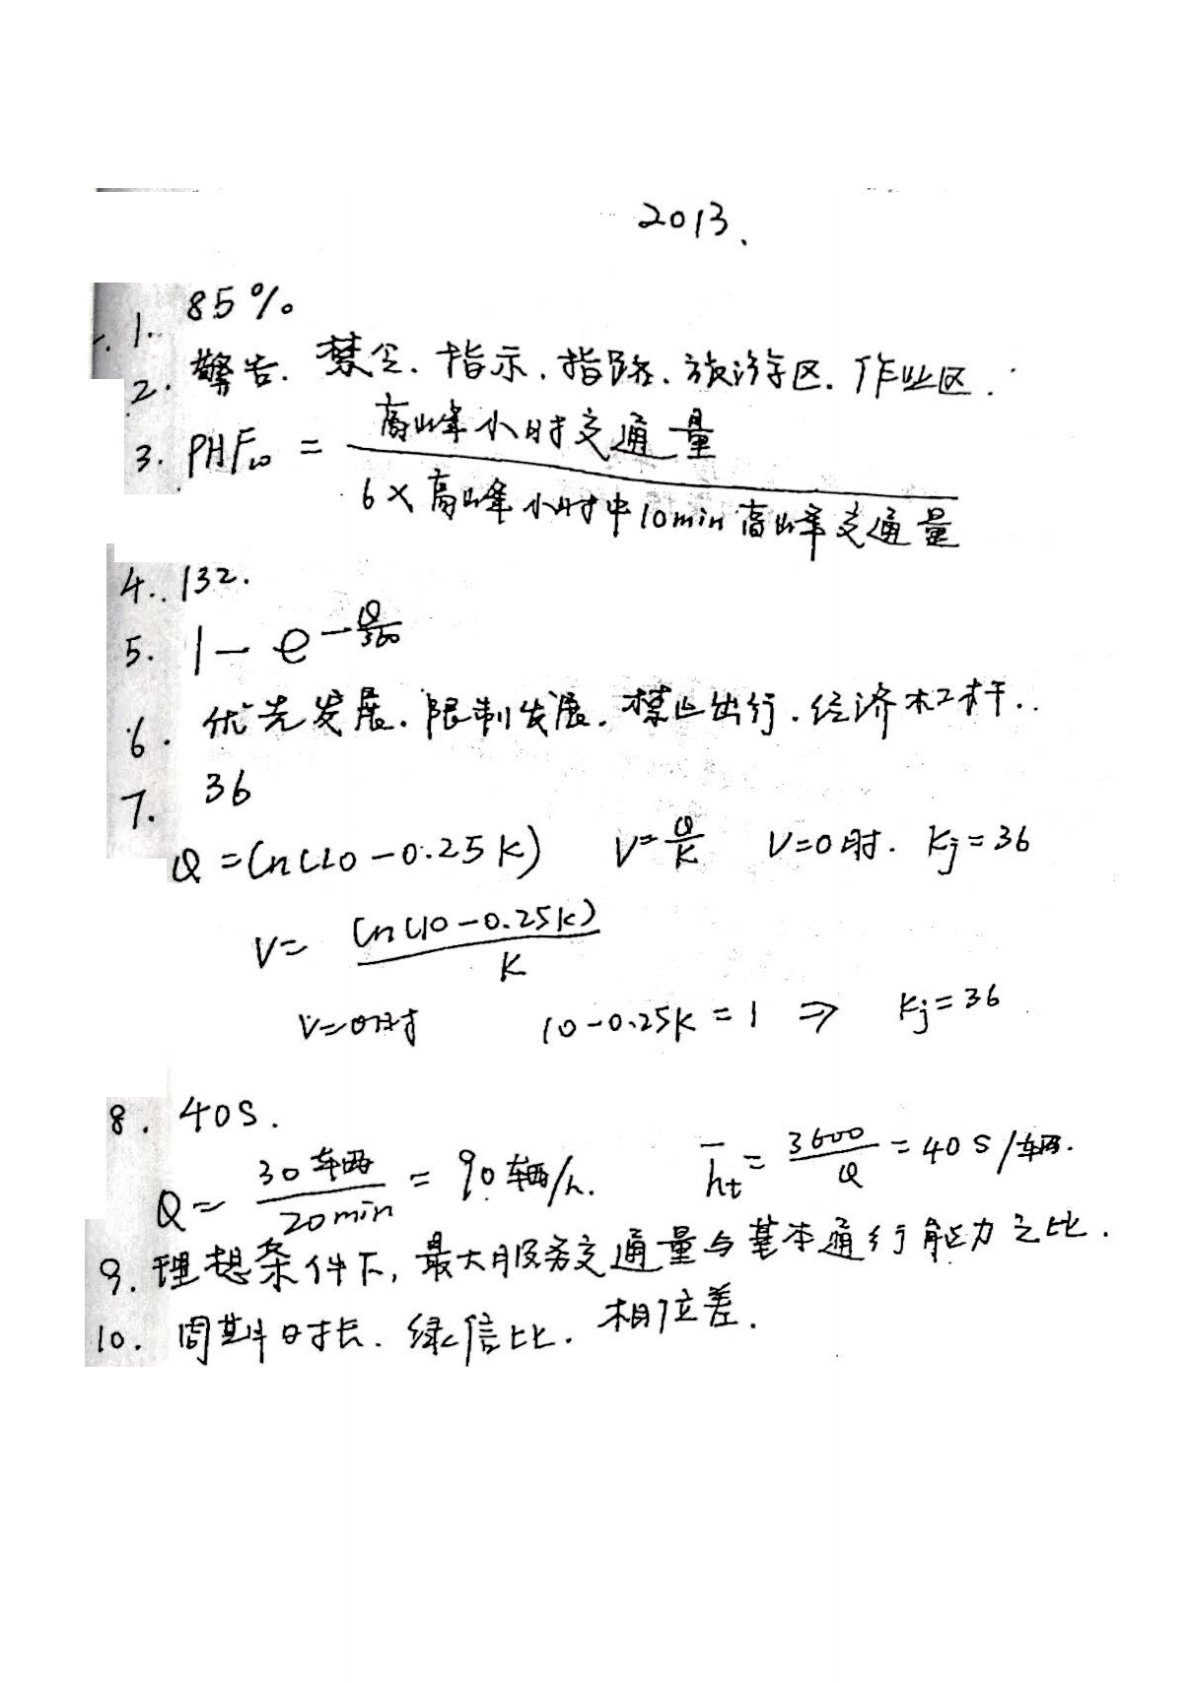 2013、
一.1. 85%
2. 警告. 禁令. 指示. 指路. 旅游区. 作业区.
3. PHF₁₀ = 高峰小时交通量 / 6×高峰小时中10min高峰交通量
4. 132.
5. 1 - e^(-Q/360)
6. 优先发展. 限制发展. 禁止出行. 经济杠杆..
7. 36
Q = Ln(10-0.25K) V=Q/K V=0时. Kj=36
V= Ln(10-0.25K) / K
V=0时 10-0.25K=1 ⇒ Kj=36
8. 40S.
Q= 30车辆/20min = 90车辆/h. h̄t = 3600/Q = 40S/车辆.
9. 理想条件下, 最大服务交通量与基本通行能力之比.
10. 周期时长. 绿信比. 相位差.